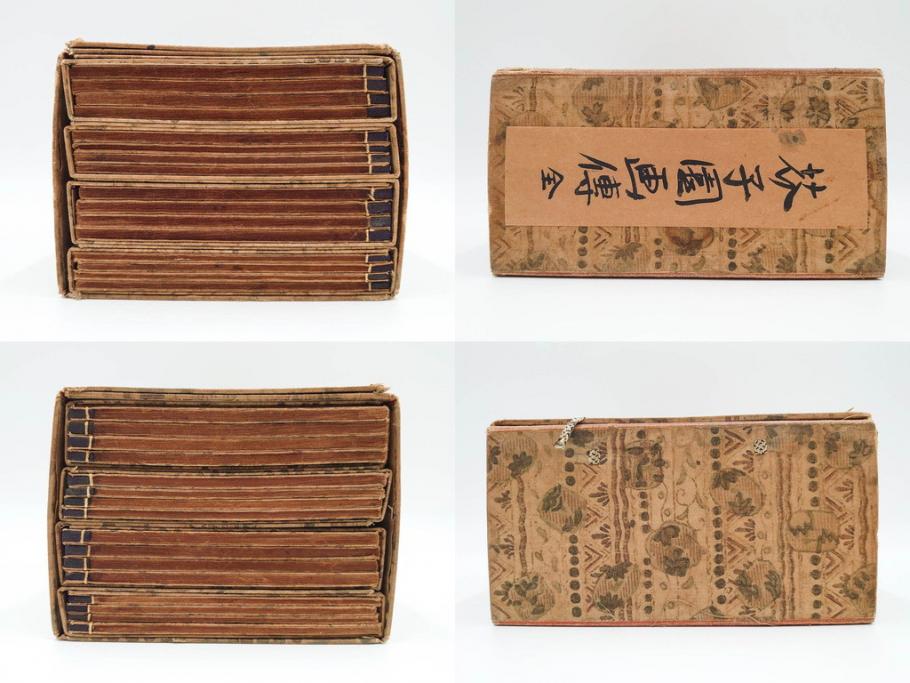 芥子園画傳 全